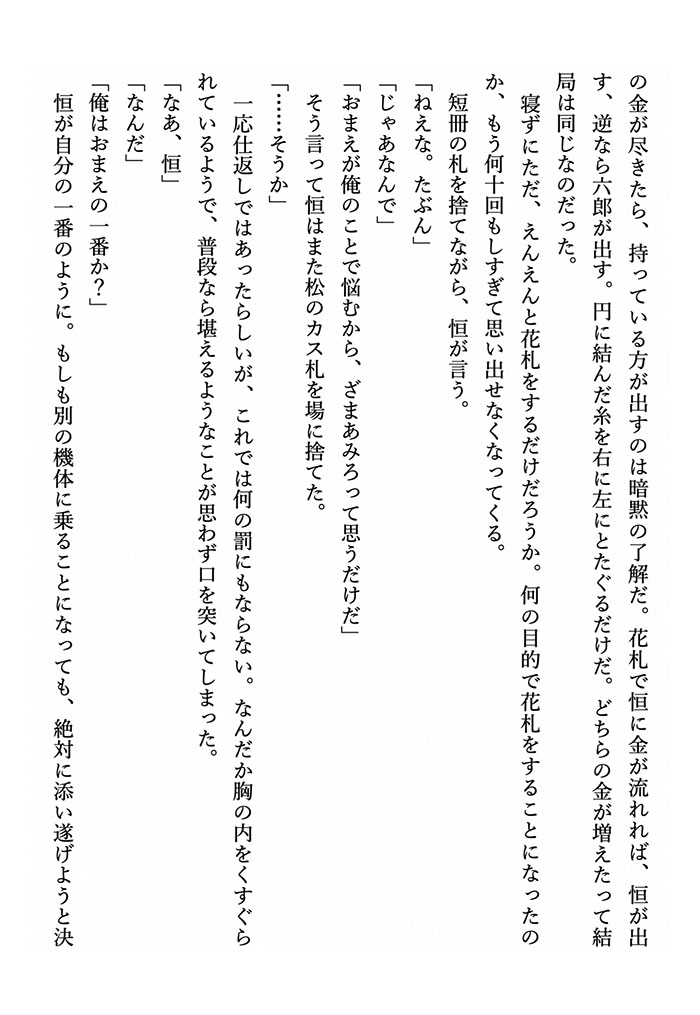 の金が尽きたら、持っている方が出すのは暗黙の了解だ。花札で恒に金が流れれば、恒が出
す、逆なら六郎が出す。円に結んだ糸を右に左にとたぐるだけだ。どちらの金が増えたって結
局は同じなのだった。
　寝ずにただ、えんえんと花札をするだけだろうか。何の目的で花札をすることになったの
か、もう何十回もしすぎて思い出せなくなってくる。
　短冊の札を捨てながら、恒が言う。
「ねえな。たぶん」
「じゃあなんで」
「おまえが俺のことで悩むから、ざまあみろって思うだけだ」
　そう言って恒はまた松のカス札を場に捨てた。
「……そうか」
　一応仕返しではあったらしいが、これでは何の罰にもならない。なんだか胸の内をくすぐら
れているようで、普段なら堪えるようなことが思わず口を突いてしまった。
「なあ、恒」
「なんだ」
「俺はおまえの一番か？」
　恒が自分の一番のように。もしも別の機体に乗ることになっても、絶対に添い遂げようと決